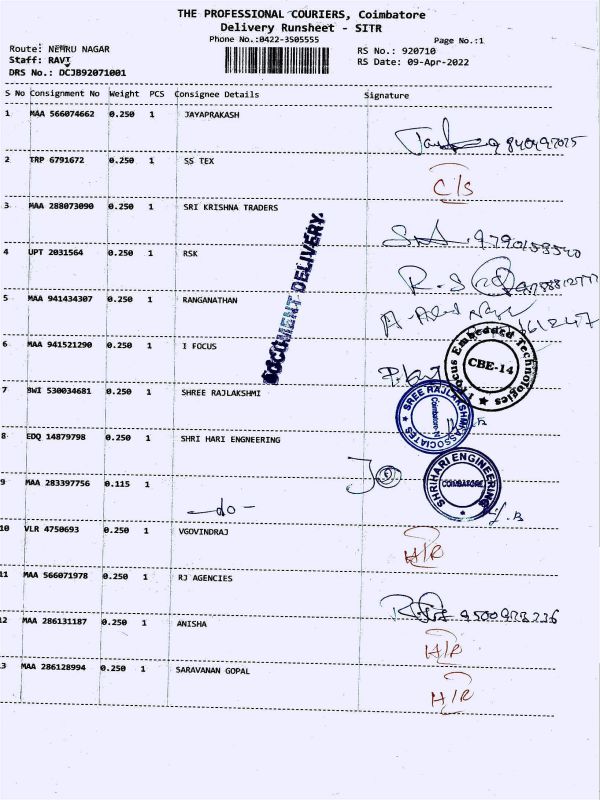 THE PROFESSIONAL COURIERS, Coimbatore
Delivery Runsheet - SITR
Phone No.:0422-3505555
Page No.:1
Route: NEHRU NAGAR
RS No.: 920710
Staff: RAVI
RS Date: 09-Apr-2022
DRS No.: DCJB92071001
S No Consignment No Weight PCS Consignee Details Signature
1 MAA 566074662 0.250 1 JAYAPRAKASH
2 TRP 6791672 0.250 1 SS TEX
C/S
3 MAA 288073090 0.250 1 SRI KRISHNA TRADERS
DOCUMENT DELIVERY
4 UPT 2031564 0.250 1 RSK
5 MAA 941434307 0.250 1 RANGANATHAN
6 MAA 941521290 0.250 1 I FOCUS
I Focus Embedded Technologies
CBE-14
7 BWI 530034681 0.250 1 SHREE RAJLAKSHMI
SREE RAJLAKSHMI ASSOCIATES
8 EDQ 14879798 0.250 1 SHRI HARI ENGNEERING
SHRIHARI ENGINEERING
COIMBATORE
9 MAA 283397756 0.115 1
-do-
10 VLR 4750693 0.250 1 VGOVINDRAJ
H/R
11 MAA 566071978 0.250 1 RJ AGENCIES
12 MAA 286131187 0.250 1 ANISHA
H/R
3 MAA 286128994 0.250 1 SARAVANAN GOPAL
H/R